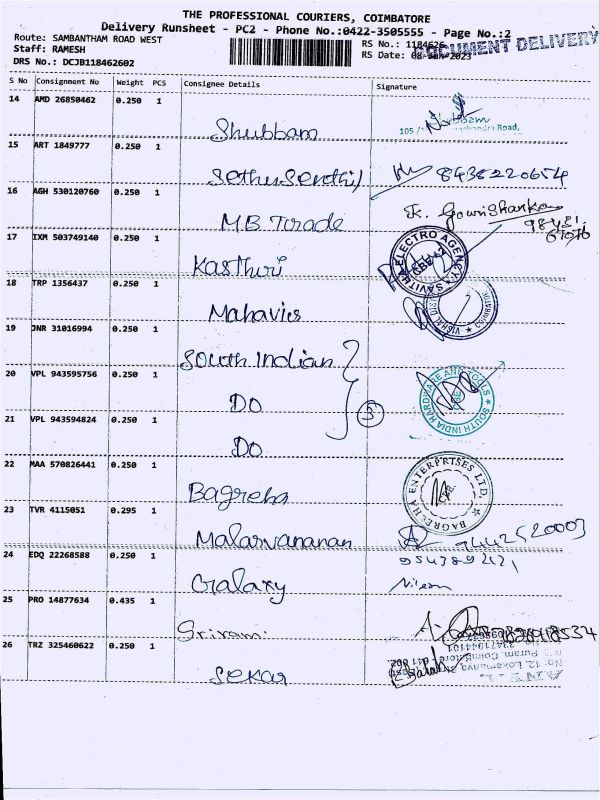 THE PROFESSIONAL COURIERS, COIMBATORE
Delivery Runsheet - PC2 - Phone No.:0422-3505555 - Page No.:2
Route: SAMBANTHAM ROAD WEST
RS No.: 1184626
DOCUMENT DELIVERY
Staff: RAMESH
RS Date: 08-Jun-2023
DRS No.: DCJB118462602
S No Consignment No Weight PCS Consignee Details Signature
14 AMD 26850462 0.250 1
Shubbam
105 / Road,
15 ART 1849777 0.250 1
Sethusenthil 8438220654
16 AGH 530120760 0.250 1
M.B. Trade K. Gowrishankar
17 IXM 503749140 0.250 1
Kasthuri SAVITHA ELECTRO AGENCY CBE-2
18 TRP 1356437 0.250 1
Mahavies VISHAL
19 JNR 31016994 0.250 1
South Indian
20 VPL 943595756 0.250 1
DO 3 SOUTH INDIA HARDWARE AND TOOLS CBE
21 VPL 943594824 0.250 1
DO
22 MAA 570826441 0.250 1
Bagreha BAGRECHA ENTERPRISES LTD. CBE.
23 TVR 4115051 0.295 1
Malarvananan 9442520003
24 EDQ 22268588 0.250 1
Galaxy
25 PRO 14877634 0.435 1
Sriram.
26 TRZ 325460622 0.250 1
Sekar
No: 12, Lokamanya
Puram, Coimbatore